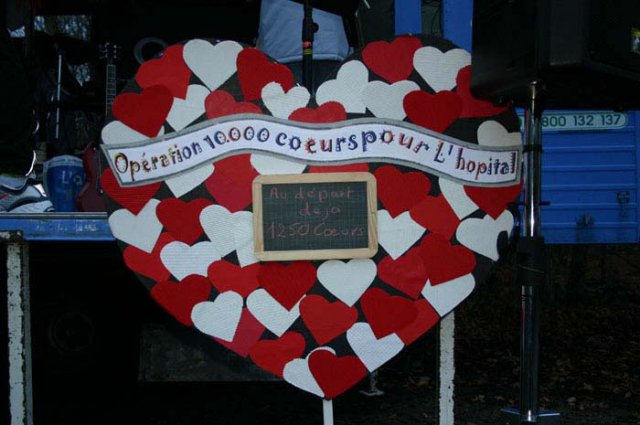 Opération 10.000 coeurs pour L'hopital
Au départ
deja
1250 Coeurs
800 132 137